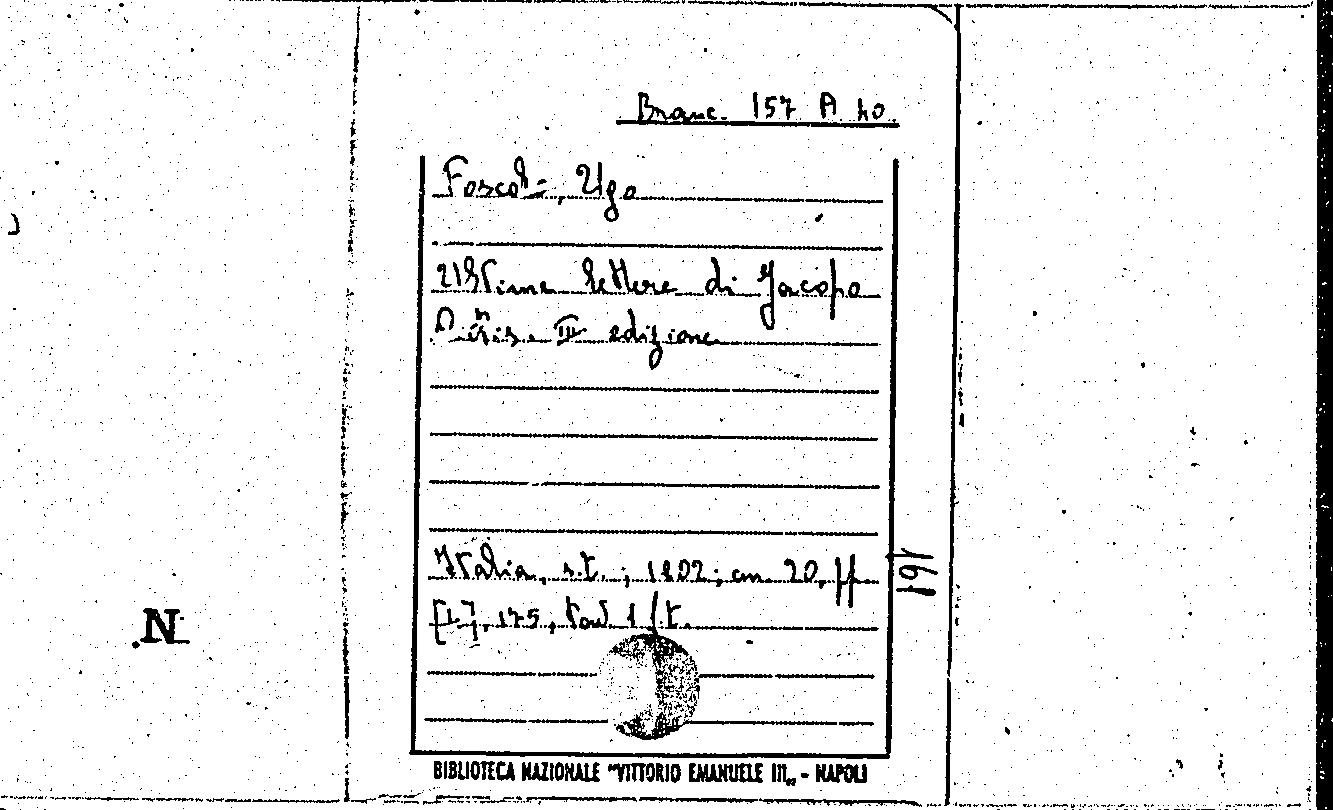 Branc. 157 A 40
Foscolo, Ugo
Ultime lettere di Jacopo
Ortis. III edizione
Italia, s.t.; 1802; cm. 20, pp.
[I], 175, tav. 1 f.t.
161
N
BIBLIOTECA NAZIONALE "VITTORIO EMANUELE III„ - NAPOLI